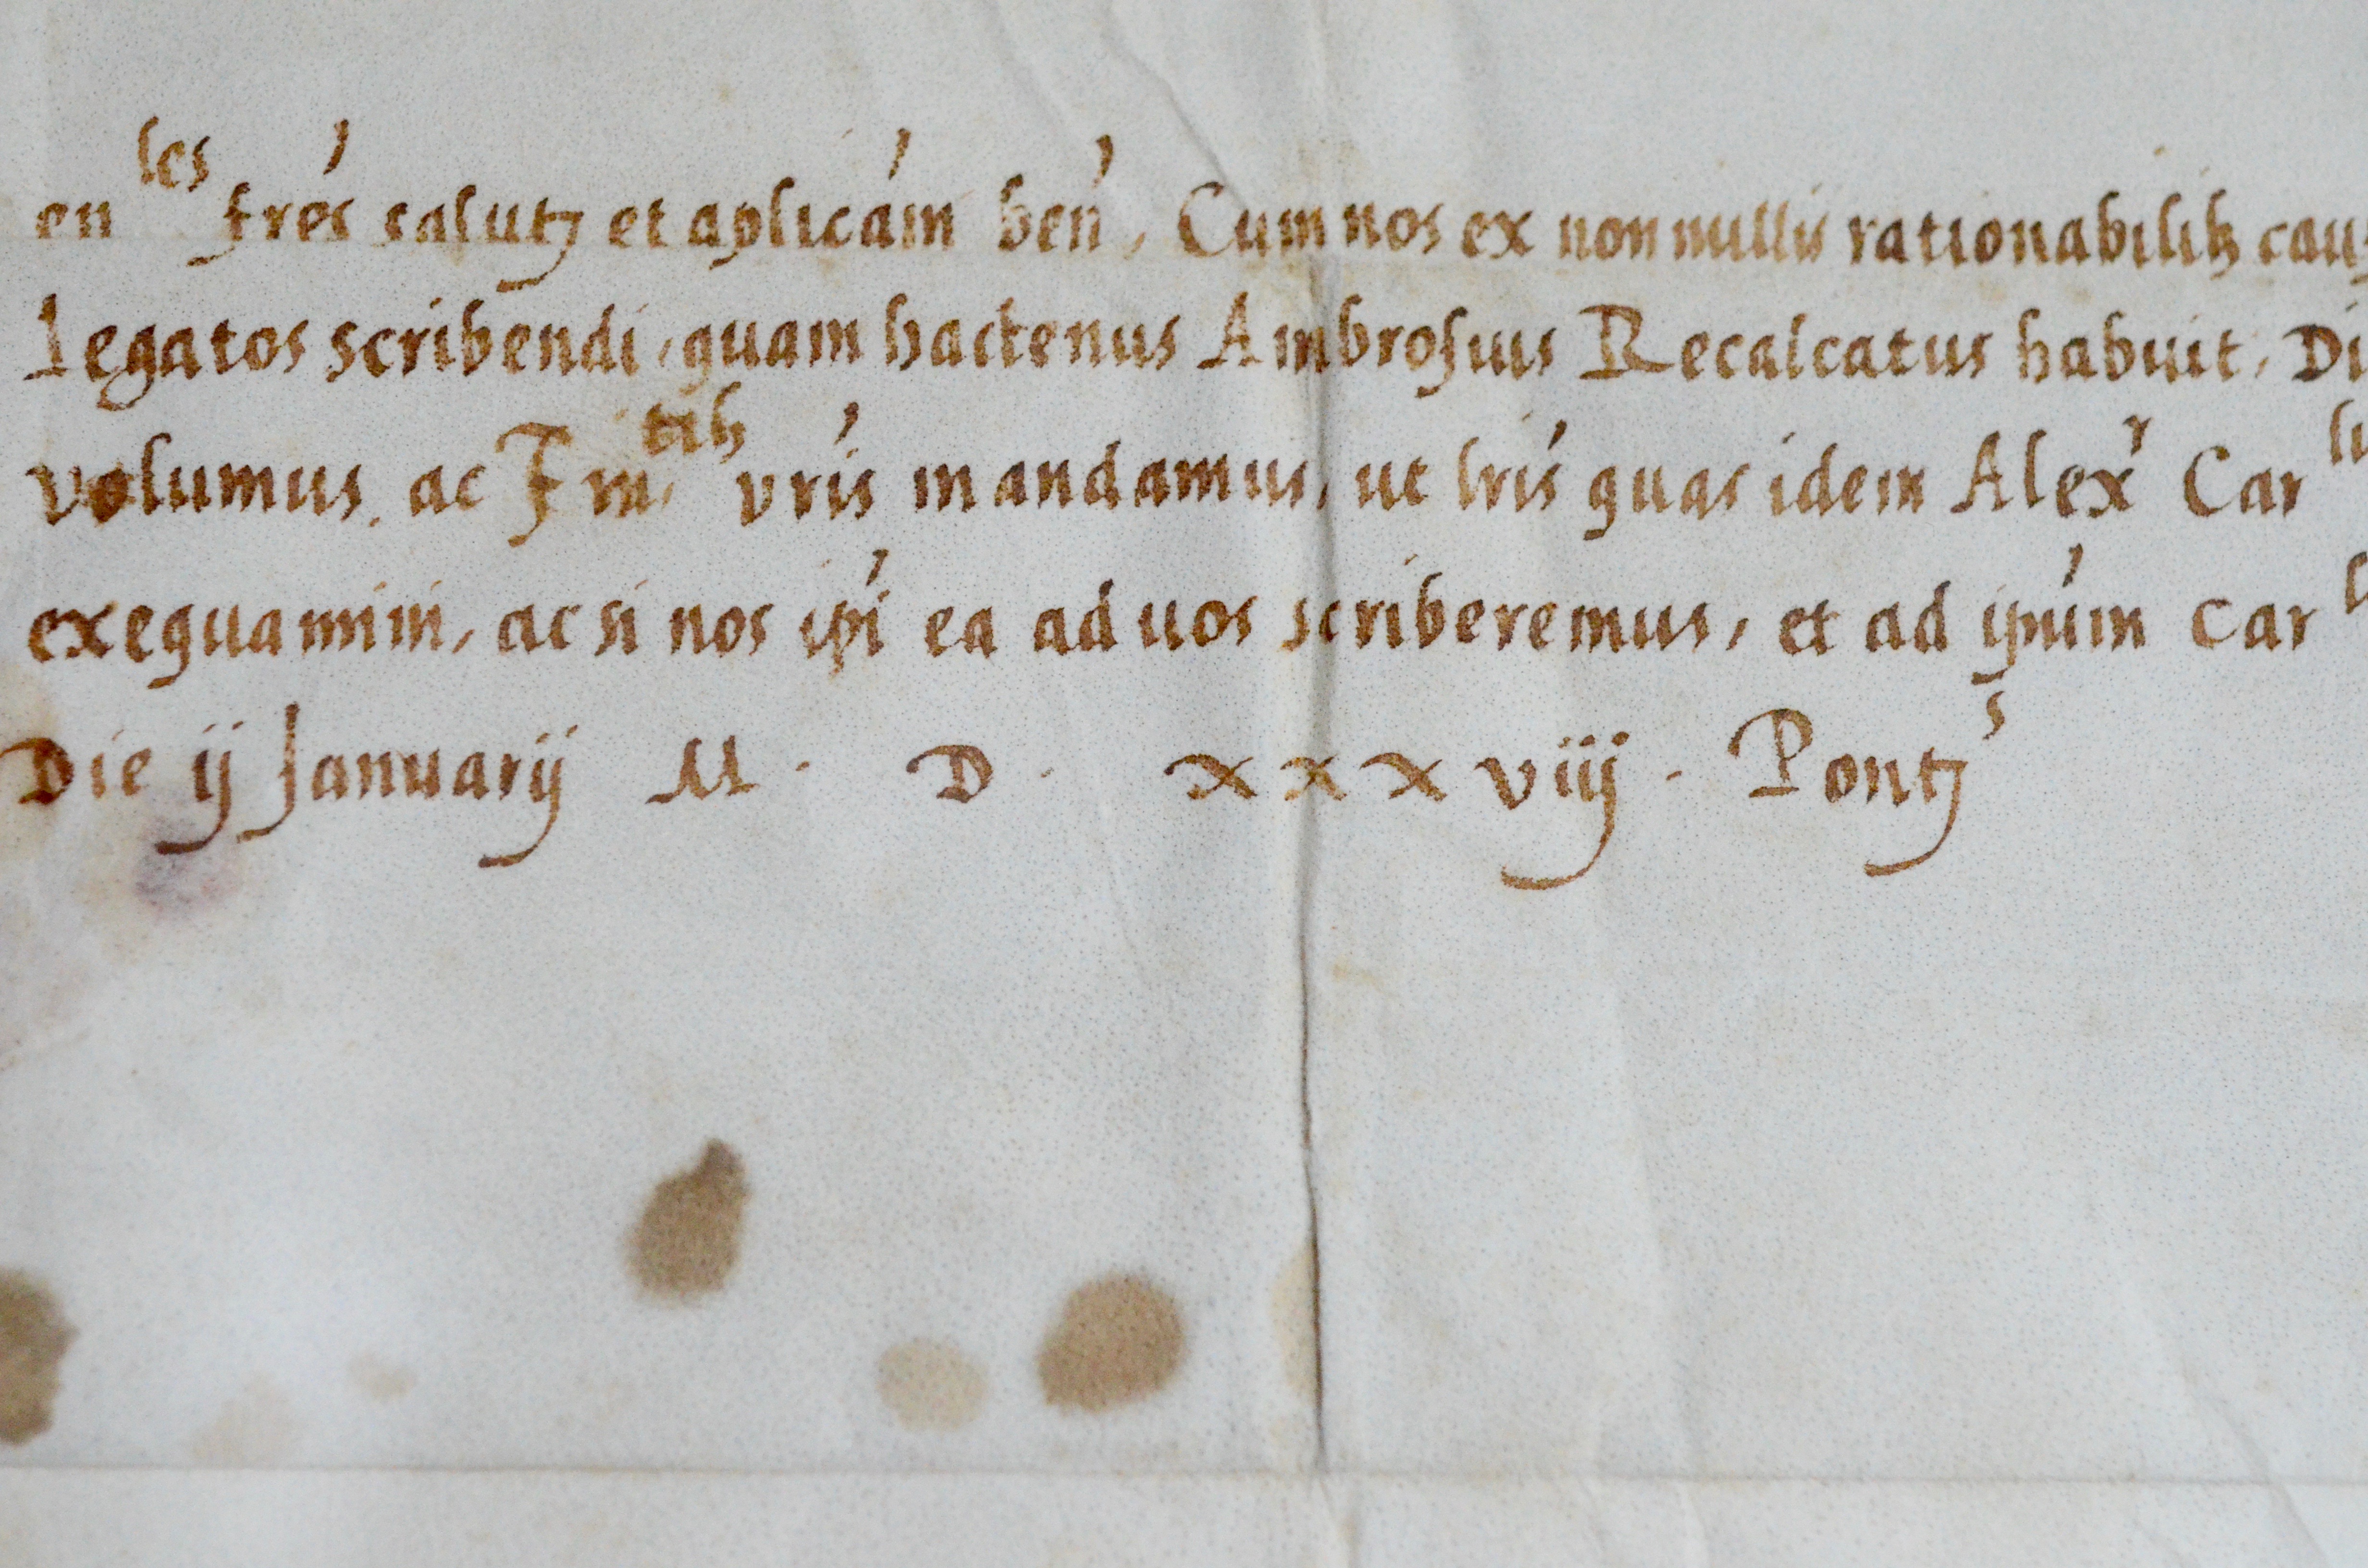 en les fres salutȝ et aplicam ben, Cum nos ex non nullis rationabilibȝ caus
Legatos scribendi, quam hactenus Ambrosius Recalcatus habuit, Di
volumus. ac Frn.tibȝ vris mandamus, ut lris quas idem Alexr Car li
exequamini, ac si nos ipi ea ad uos scriberemus, et ad ipum Car l
Die ij Januarij M · D · xxxviij · Pontȝ s